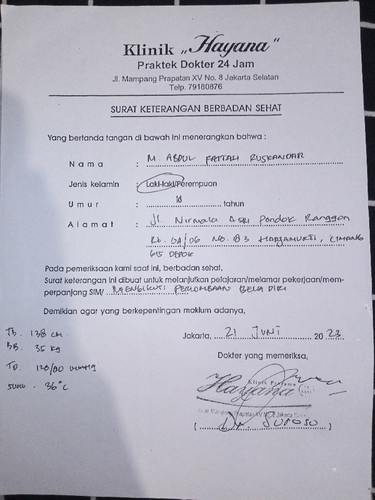 Klinik „Hayana“
Praktek Dokter 24 Jam
Jl. Mampang Prapatan XV No. 8 Jakarta Selatan
Telp. 79180876
SURAT KETERANGAN BERBADAN SEHAT
Yang bertanda tangan di bawah ini menerangkan bahwa :
Nama : M. ABDUL FATTAH RUSKANDAR
Jenis kelamin : Laki-laki/Perempuan
Umur : tahun
Alamat : Jl. Nirmala ASRI Pondok Ranggon
Rt. 04/06 NO. B3 HARJAMUKTI, CIMANGGIS DEPOK
Pada pemeriksaan kami saat ini, berbadan sehat.
Surat keterangan ini dibuat untuk melanjutkan pelajaran/melamar pekerjaan/mem-
perpanjang SIM/ MENGIKUTI PERLOMBAAN BELA DIRI
Demikian agar yang berkepentingan maklum adanya,
Jakarta, 21 JUNI 20 23
Dokter yang memeriksa,
TB. 138 cm
BB. 35 kg
TD. 120/80 mmHg
SUHU . 36°C
Klinik Pratama
Hayana
Mampang Prapatan XV No. 8 Jakarta
( Dr. SUROSO )